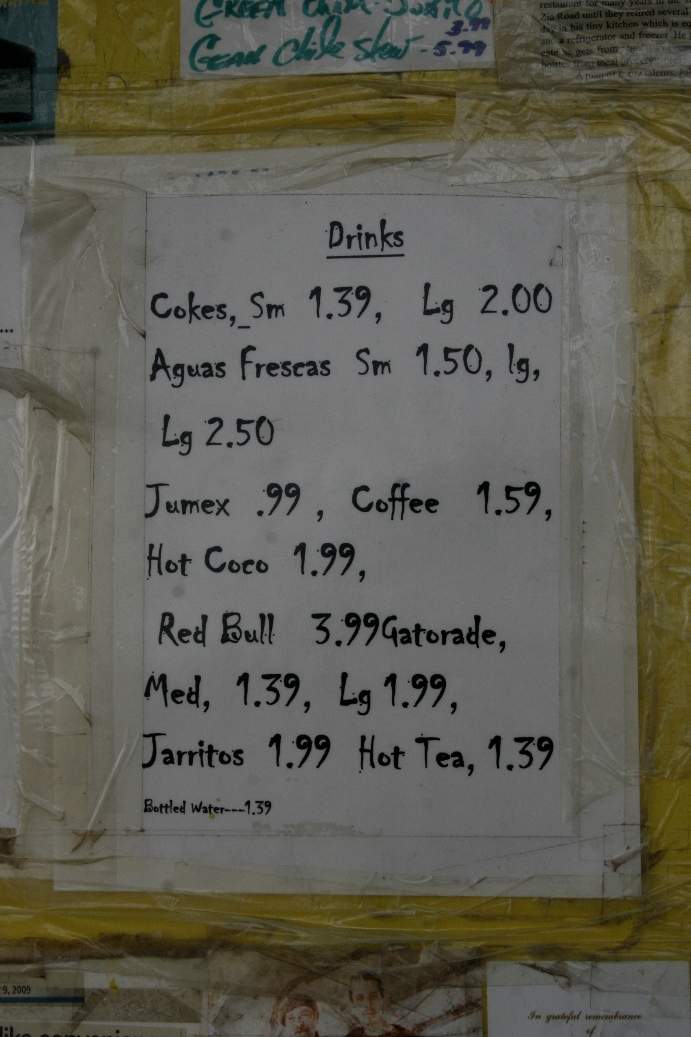 3.99
Chile Stew - 5.99
restaurant for many years in
Zia Road until they retired several
in his tiny kitchen which is
a refrigerator and freezer. He
Drinks
Cokes,_Sm 1.39, Lg 2.00
Aguas Frescas Sm 1.50, lg,
Lg 2.50
Jumex .99 , Coffee 1.59,
Hot Coco 1.99,
Red Bull 3.99Gatorade,
Med, 1.39, Lg 1.99,
Jarritos 1.99 Hot Tea, 1.39
Bottled Water---1.39
9, 2009
like
In grateful remembrance
of